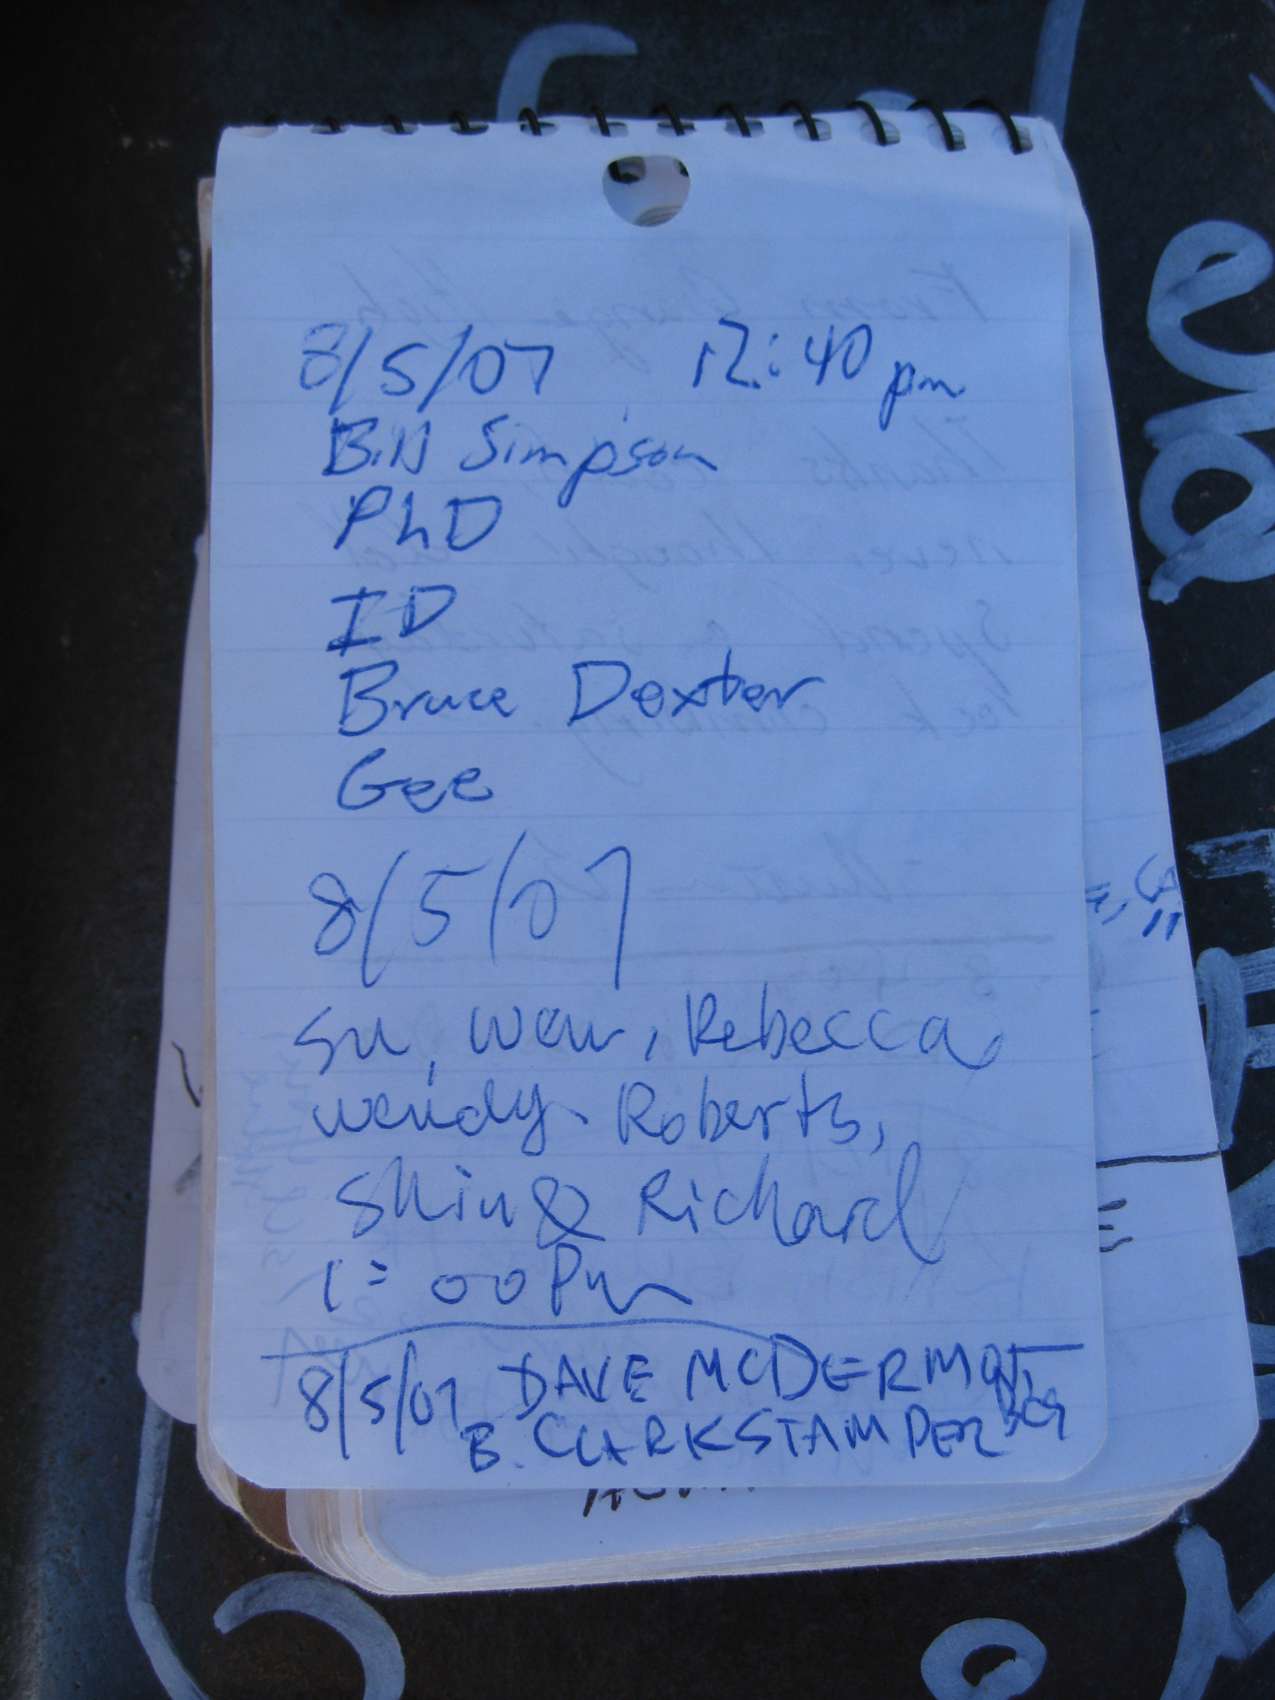 8/5/07 12:40 pm
Bill Simpson
PhD
ID
Bruce Dexter
Gee
8/5/07
Su, Wen, Rebecca,
Wendy. Roberts,
Shin & Richard
1:00 Pm
8/5/07 DAVE MCDERMOTT
B. CLARKSTAMPER